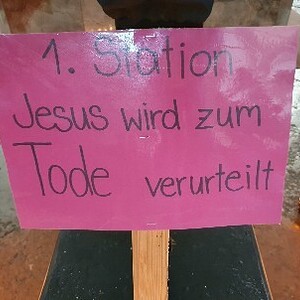 1. Station
Jesus wird zum
Tode verurteilt